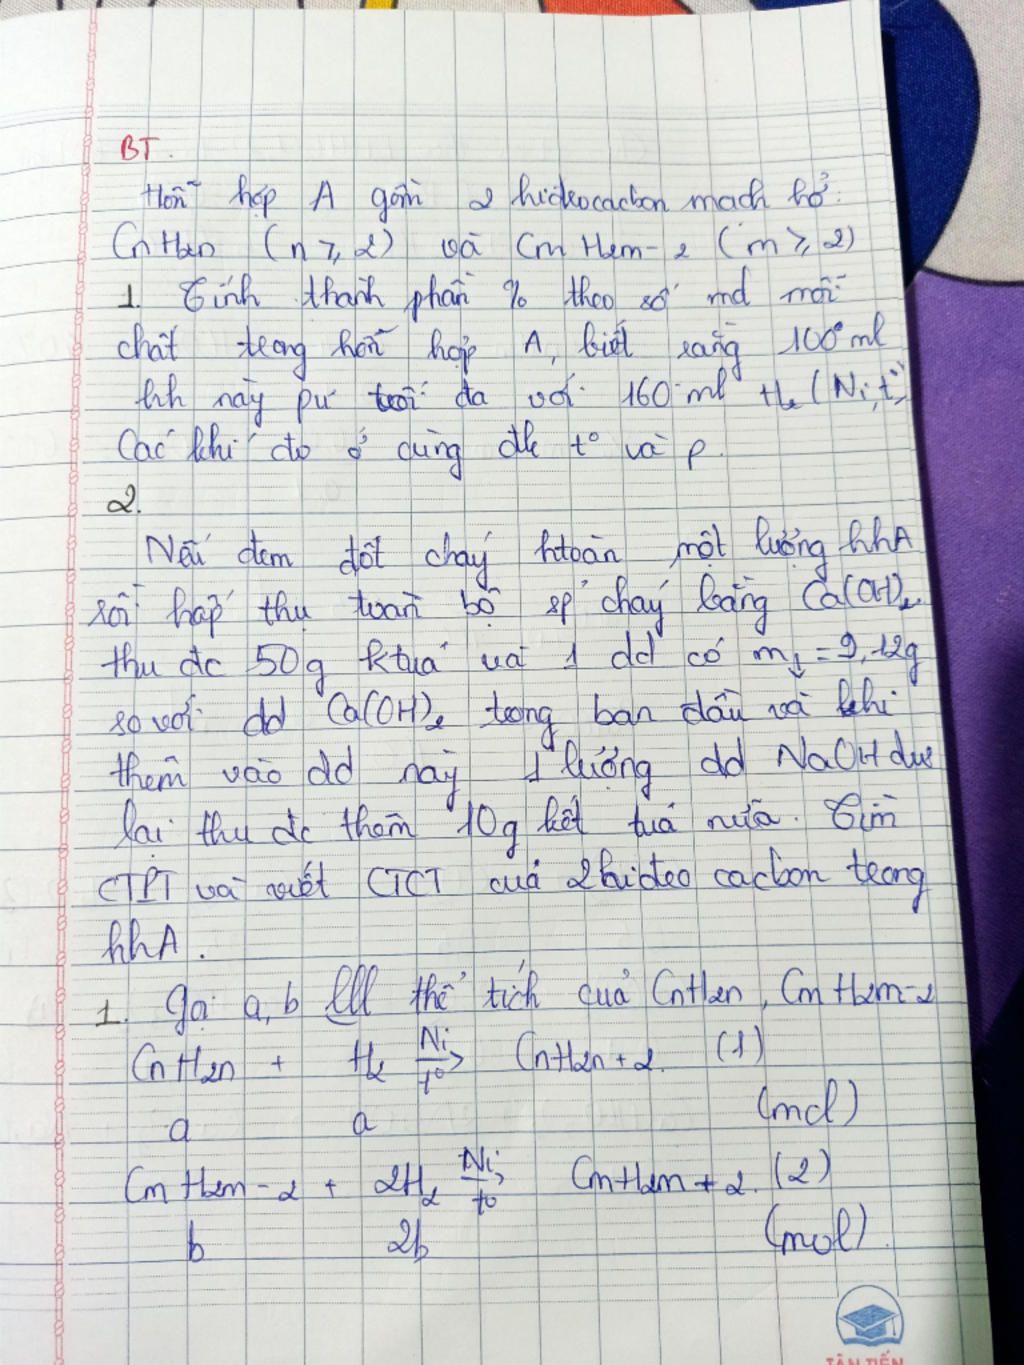 BT.
Hỗn hợp A gồm 2 hidrocacbon mạch hở.
CnH2n (n ≥ 2) và CmH2m-2 (m ≥ 2)
1. Tính thành phần % theo số mol mỗi
chất trong hỗn hợp A, biết rằng 100 ml
hh này pư tối đa với 160 ml H2 (Ni, t°)
Các khí đo ở cùng đk t° và p.
2.
Nếu đem đốt cháy htoàn một lượng hhA
rồi hấp thụ toàn bộ sp cháy bằng Ca(OH)2
thu đc 50g ktuả và 1 dd có m↓ = 9,12g
so với dd Ca(OH)2 trong ban đầu và khi
thêm vào dd này 1 lượng dd NaOH dư
lại thu đc thêm 10g kết tuả nữa. Tìm
CTPT và viết CTCT cuả 2 hidro cacbon trong
hhA.
1. Gọi a, b lll thể tích cuả CnH2n, CmH2m-2
CnH2n + H2 Ni t° → CnH2n+2. (1)
a a (mol)
CmH2m-2 + 2H2 Ni t° → CmH2m+2. (2)
b 2b (mol).
TÂN TIẾN